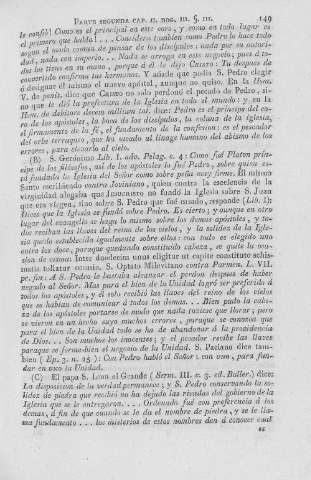 PARTE SEGUNDA CAP. II. DOG. III. §. III. 149
le confió! Como es el principal en este coro, y como en todo lugar es
el primero que habla! . . . Considera tambien como Pedro lo hace todo
segun el modo comun de pensar de los discípulos: nada por su autori-
dad, nada con imperio. . . Nada se arroga en este negocio; pues á to-
dos los tiene en su mano, porque á él le dijo Christo: Tu despues de
convertido confirma tus hermanos. Y añade que podia S. Pedro elegir
ó designar él mismo el nuevo apóstol, aunque no quiso. En la Hom.
V. de penit. dice que Christo no solo perdonó el pecado de Pedro, si-
no que le dió la prefectura de la Iglesia en todo el mundo: y en la
Hom. de debitore decem millium tal. dice: Pedro es el príncipe del co-
ro de los apóstoles, la boca de los discípulos, la coluna de la iglesia,
el firmamento de la fé, el fundamento de la confesion: es el pescador
del orbe terraqueo, que ha sacado al linage humano del abismo de los
errores, para elevarlo al cielo.
(B) S. Gerónimo Lib. I. adv. Pelag. c. 4: Como fué Platon prín-
cipe de los filósofos, así de los apóstoles lo fué Pedro, sobre quien es-
tá fundada la Iglesia del Señor como sobre peña muy firme. El mismo
Santo escribiendo contra Joviniano, quien contra la escelencia de la
virginidad alegaba que Jesucristo no fundó la Iglesia sobre S. Juan
que era virgen, sino sobre S. Pedro que fué casado, responde (Lib. I):
Dices que la Iglesia se fundó sobre Pedro. Es cierto; y aunque en otro
lugar del evangelio se haga lo mismo sobre todos los apóstoles, y to-
dos reciban las llaves del reino de los cielos, y la solidez de la Igle-
sia quede establecida igualmente sobre ellos: con todo es elegido uno
entre los doce, paraque quedando constituido cabeza, se quite la oca-
sion de cisma: Inter duodecim unus eligitur ut capite constituto schis-
matis tollatur occasio. S. Optato Milevitano contra Parmen. L. VII.
pr. fin: A S. Pedro le bastaba alcanzar el perdon despues de haber
negado al Señor. Mas para el bien de la Unidad logró ser preferido á
todos los apóstoles, y él solo recibió las llaves del reino de los cielos
que se habian de comunicar á todos los demas. . . Bien pudo la cabe-
za de los apóstoles portarse de modo que nada tuviese que llorar, pero
se vieron en un hecho suyo muchos errores, paraque se conozca que
para el bien de la Unidad todo se ha de abandonar á la providencia
de Dios. . . Son muchos los inocentes; y el pecador recibe las llaves
paraque se forme bien el negocio de la Unidad. S. Paciano dice tam-
bien (Ep. 3. n. 25): Con Pedro habló el Señor: con uno, para fun-
dar en uno la Unidad.
(C) El papa S. Leon el Grande (Serm. III. c. 3. ed. Baller.) dice:
La disposicion de la verdad permanece; y S. Pedro conservando la so-
lidez de piedra que recibió no ha dejado las riendas del gobierno de la
Iglesia que se le entregaron. . . . Ordenado fué con preferencia á los
demas, á fin de que cuando se le da el nombre de piedra, y se le lla-
ma fundamento . . . los misterios de estos nombres den á conocer cual